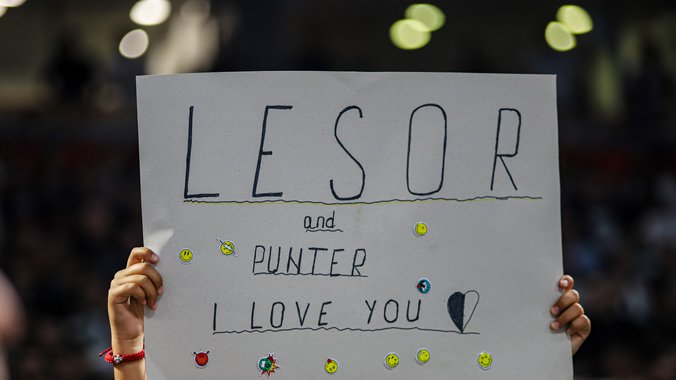 LESOR
and
PUNTER
I LOVE YOU